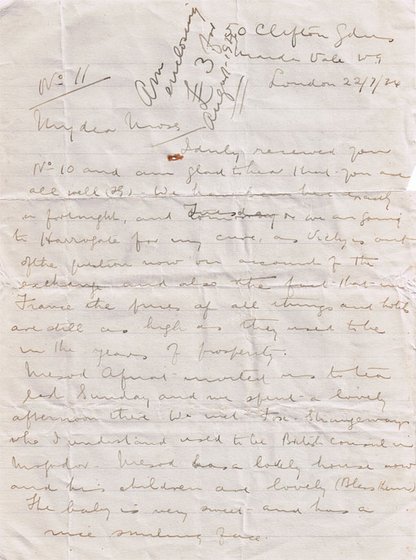 Am
enclosing
£ 3 for
August
50 Clifton Gdns
Maida Vale W9
No 11
London 22/7/
My dear Moses
I duly received your
No 10 and am glad to hear that you are
all well. We have been here exactly
a fortnight, and on we are going
to Harrogate for my cure, as Vichy is out
of the question now on account of the
exchange and also the fact that in
France the prices of all things and hotels
are still as high as they used to be
in the years of prosperity.
Mesod Afriat invited us to tea
last Sunday and we spent a lovely
afternoon there. We met Fox-Strangeways
who I understand used to be British consul in
Mogador. Mesod has a lovely house now
and his children are lovely (Bless them)
The baby is very sweet and has a
nice smiling face.